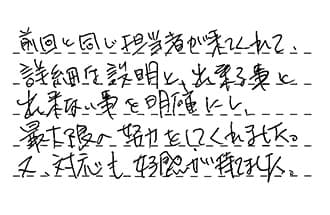 前回と同じ担当者が来てくれて、
詳細な説明と、出来る事と
出来ない事を明確にし、
最大限の努力をしてくれました。
又、対応も好感が持てました。